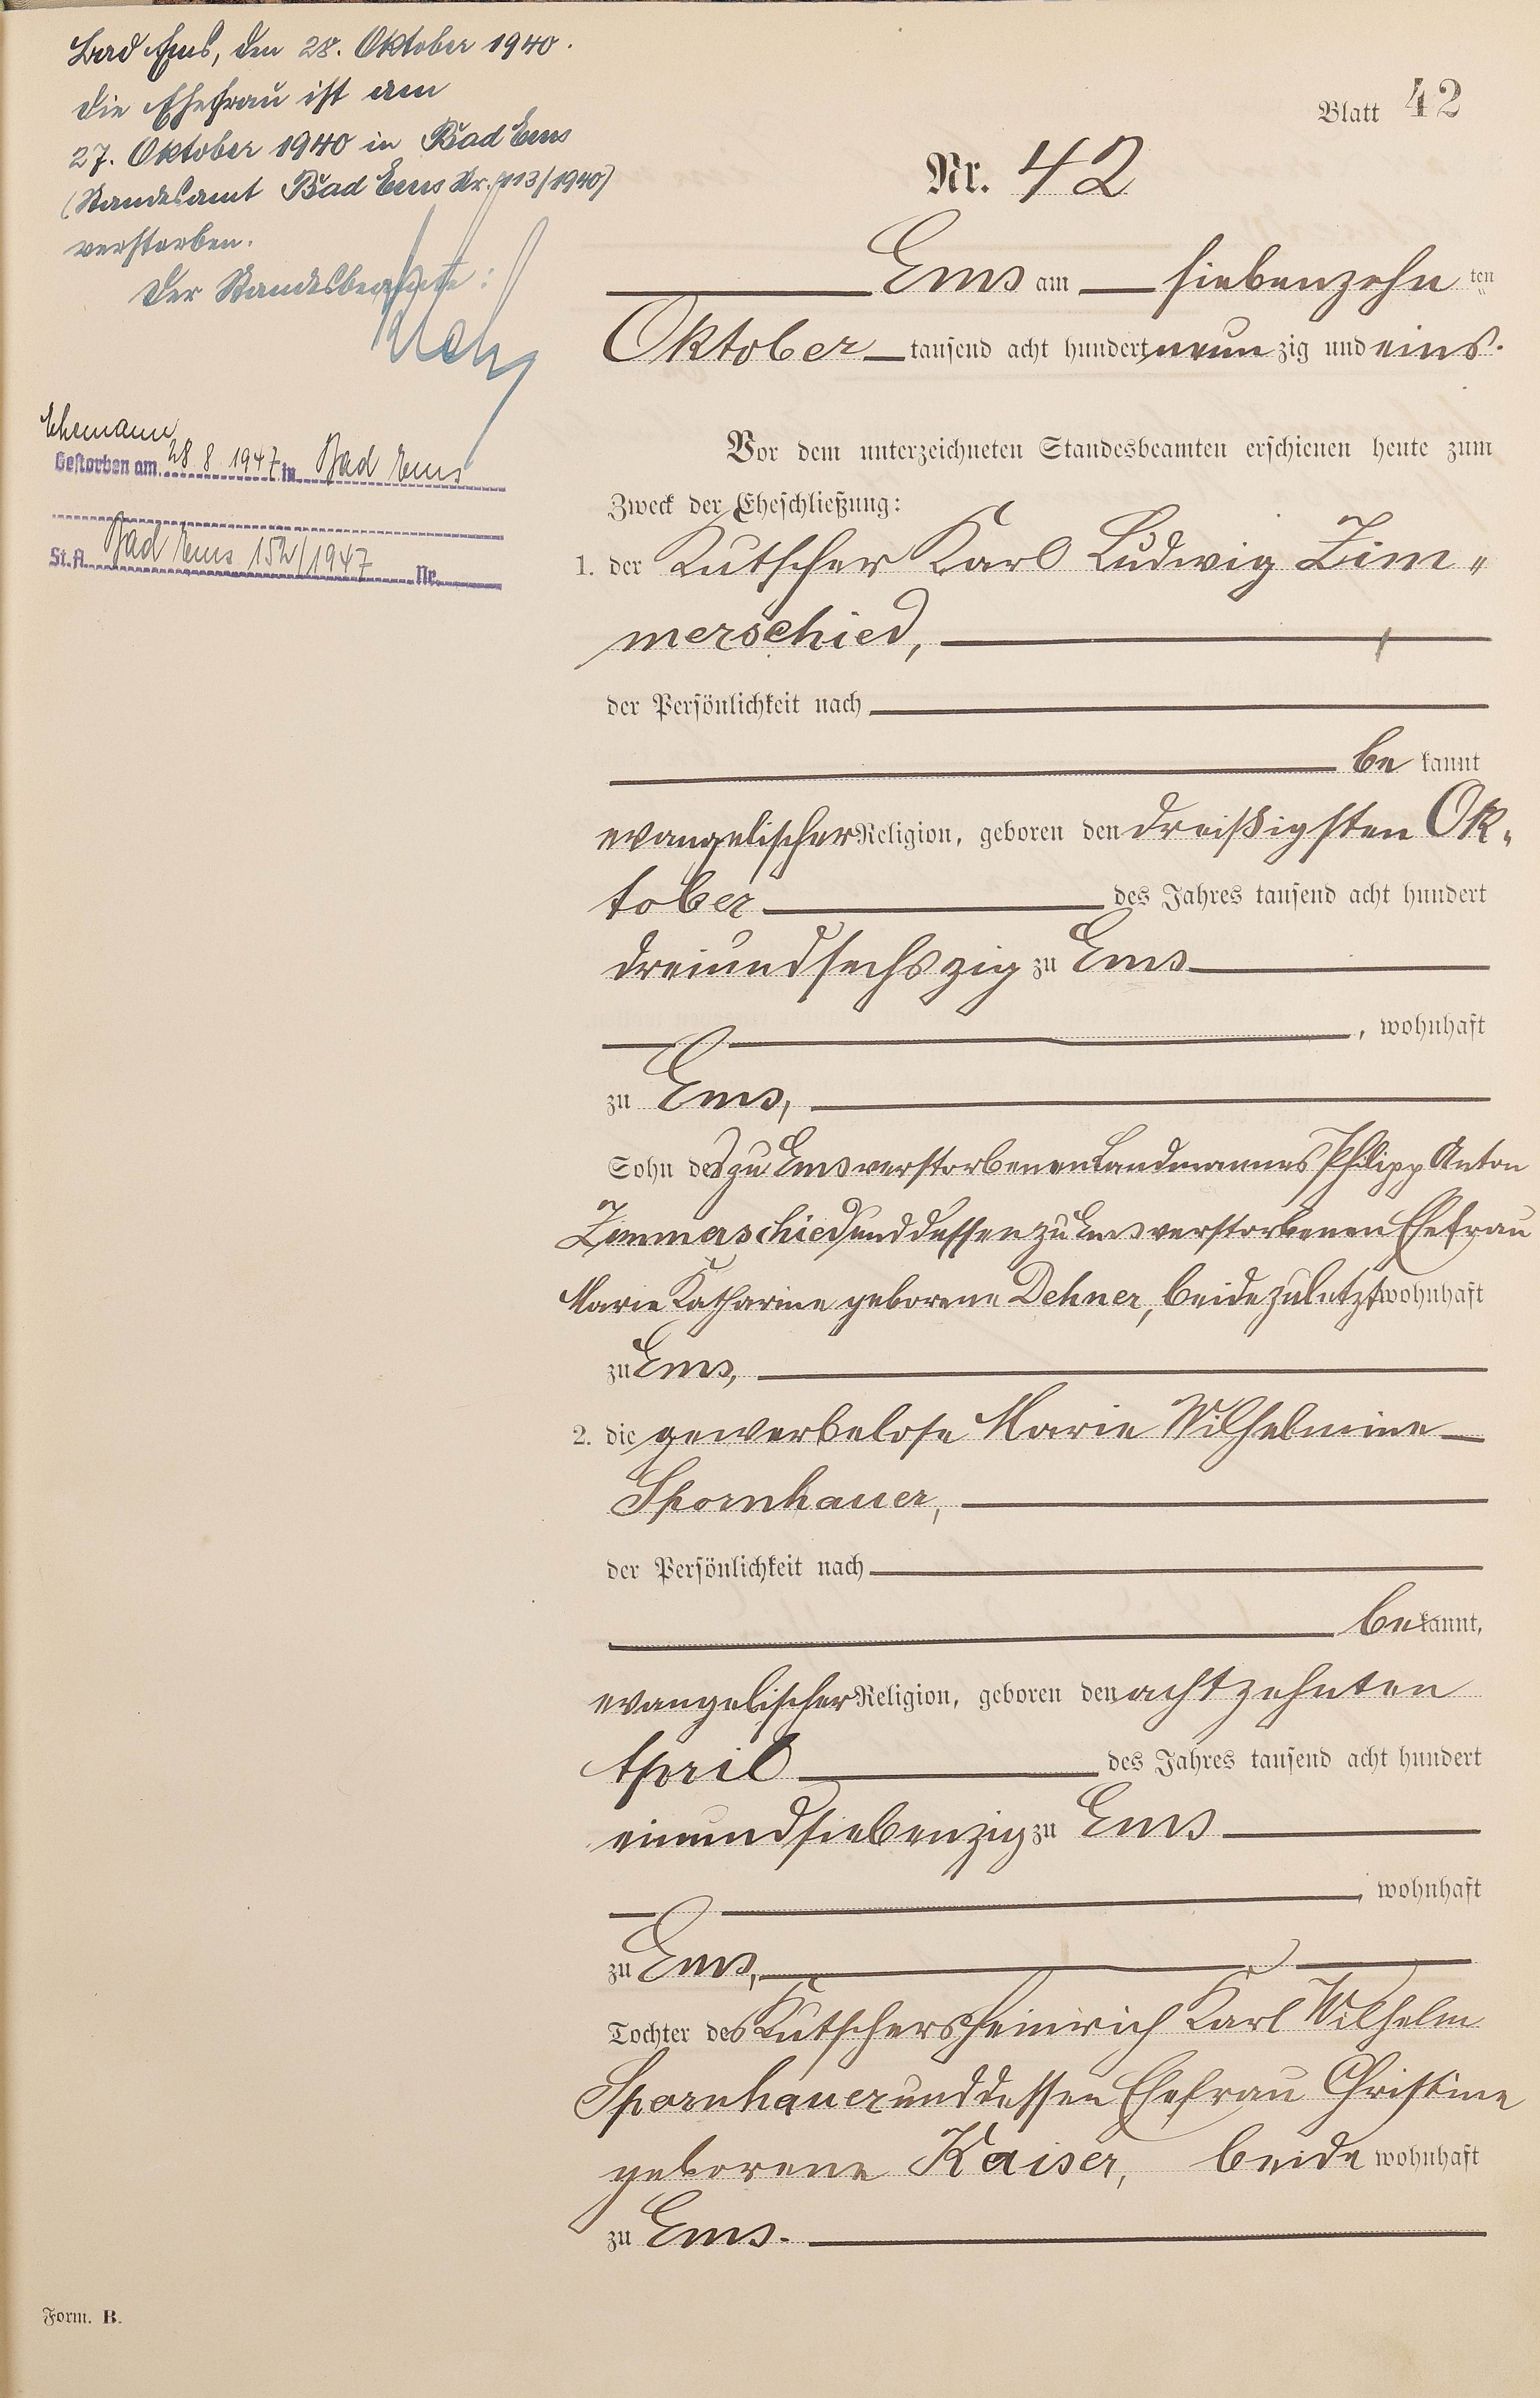 Bad Ems, den 28. Oktober 1940.
Die Ehefrau ist am
27. Oktober 1940 in Bad Ems
(Standesamt Bad Ems Nr. 113/1940)
verstorben.
Der Standesbeamte:
Ehemann
Gestorben am 28 8 1947 in Bad Ems
St. A. Bad Ems 152/1947 Nr.
Blatt 42
Nr. 42
Ems am siebenzehn ten
Oktober tausend acht hundert neun zig und eins.
Vor dem unterzeichneten Standesbeamten erschienen heute zum
Zweck der Eheschließung:
1. der Kutscher Karl Ludwig Zim„
merschied,
der Persönlichkeit nach
be kannt
evangelischer Religion, geboren den dreißigsten Ok„
tober des Jahres tausend acht hundert
dreiundsechszig zu Ems
, wohnhaft
zu Ems,
Sohn des zu Ems verstorbenen Landmannes Philipp Anton
Zimmerschied und dessen zu Ems verstorbenen Ehefrau
Marie Katharine geborene Dehner, beide zuletzt wohnhaft
zu Ems,
2. die gewerbelose Marie Wilhelmine
Spornhauer,
der Persönlichkeit nach
be kannt,
evangelischer Religion, geboren den achtzehnten
April des Jahres tausend acht hundert
einundsiebenzig zu Ems
, wohnhaft
zu Ems,
Tochter des Kutschers Heinrich Karl Wilhelm
Spornhauer und dessen Ehefrau Christine
geborene Kaiser, beide wohnhaft
zu Ems.
Form. B.